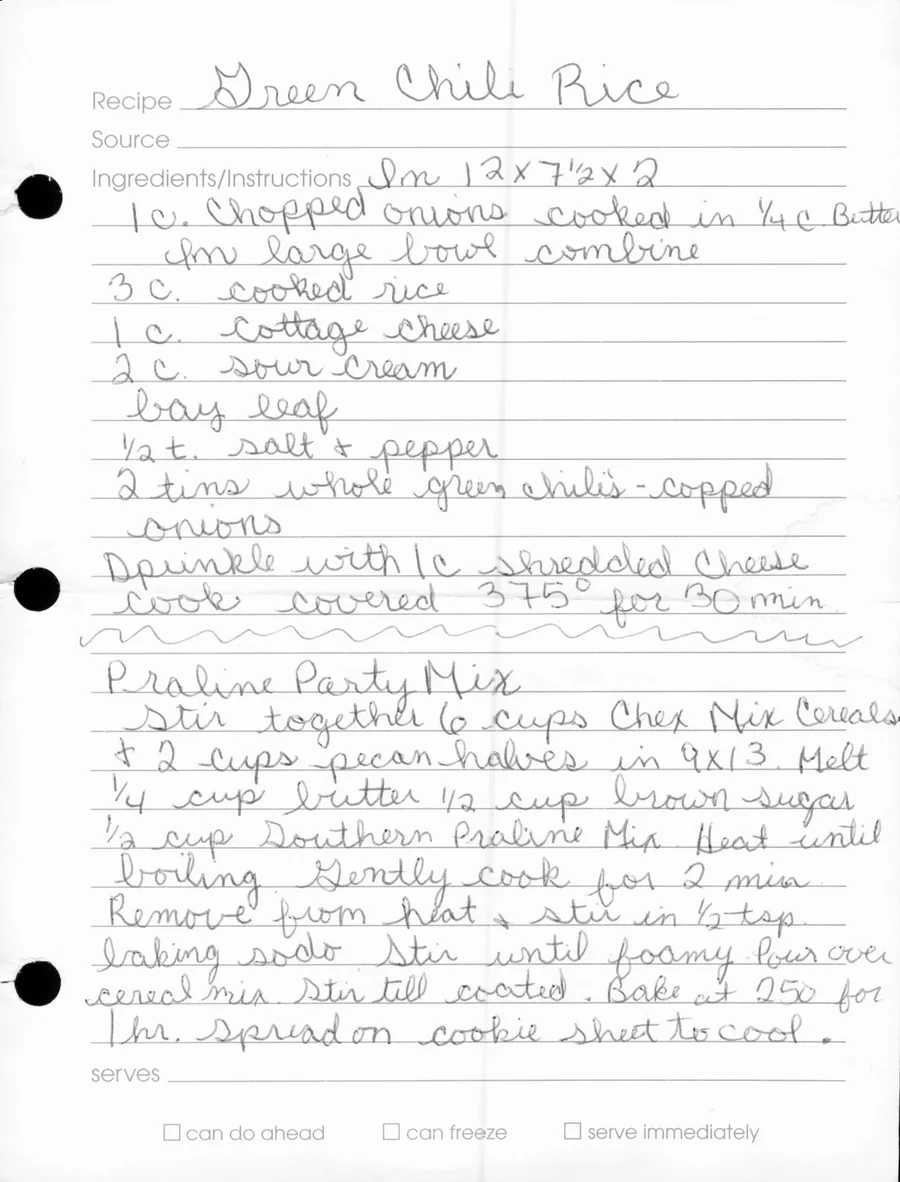 Recipe Green Chili Rice
Source
Ingredients/Instructions In 12 x 7 1/2 x 2
1 c. Chopped onions cooked in 1/4 c. Butter
In large bowl combine
3 c. cooked rice
1 c. cottage cheese
2 c. sour cream
bay leaf
1/2 t. salt & pepper
2 tins whole green chili's - copped
onions
Sprinkle with 1 c shredded Cheese
cook covered 375° for 30 min
Praline Party Mix
Stir together 6 cups Chex Mix Cereals
& 2 cups pecan halves in 9x13. Melt
1/4 cup butter 1/2 cup brown sugar
1/2 cup Southern Praline Mix. Heat until
boiling. Gently cook for 2 min
Remove from heat & stir in 1/2 tsp.
baking sodo Stir until foamy Pour over
cereal mix. Stir till coated. Bake at 250 for
1 hr. spread on cookie sheet to cool.
serves
can do ahead can freeze serve immediately